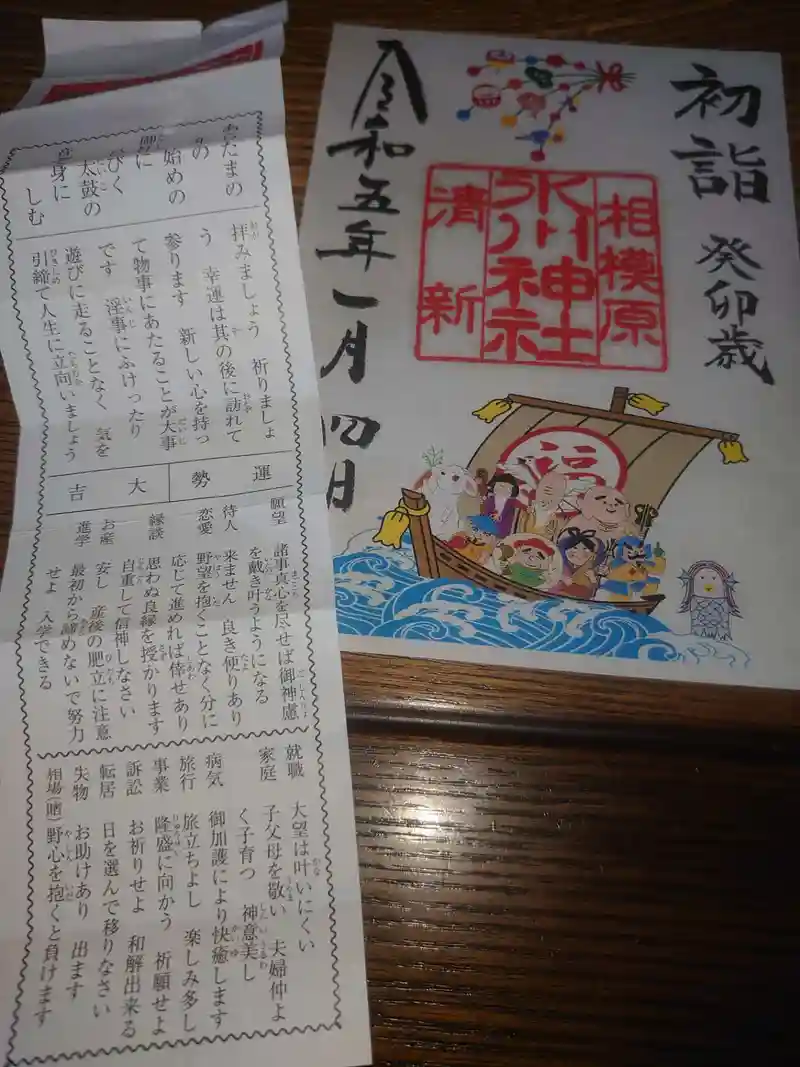 初詣 癸卯歳
相模原
氷川神社
清新
令和五年一月四日
福
たまの
の
始めの
に
びく
太鼓の
身に
しむ
拝みましょう 祈りましょ
う 幸運は其の後に訪れて
参ります 新しい心を持っ
て物事にあたることが大事
です 淫事にふけったり
遊びに走ることなく 気を
引締て人生に立向いましょう
運勢
大吉
願望 諸事真心を尽せば御神慮
を戴き叶うようになる
待人 来ません 良き便りあり
恋愛 野望を抱くことなく分に
応じて進めれば倖せあり
縁談 思わぬ良縁を授かります
自重して信神しなさい
お産 安し 産後の肥立に注意
進学 最初から諦めないで努力
せよ 入学できる
就職 大望は叶いにくい
家庭 子父母を敬い 夫婦仲よ
く子育つ 神意美し
病気 御加護により快癒します
旅行 旅立ちよし 楽しみ多し
事業 隆盛に向かう 祈願せよ
訴訟 お祈りせよ 和解出来る
転居 日を選んで移りなさい
失物 お助けあり 出ます
相場(賭) 野心を抱くと負けます